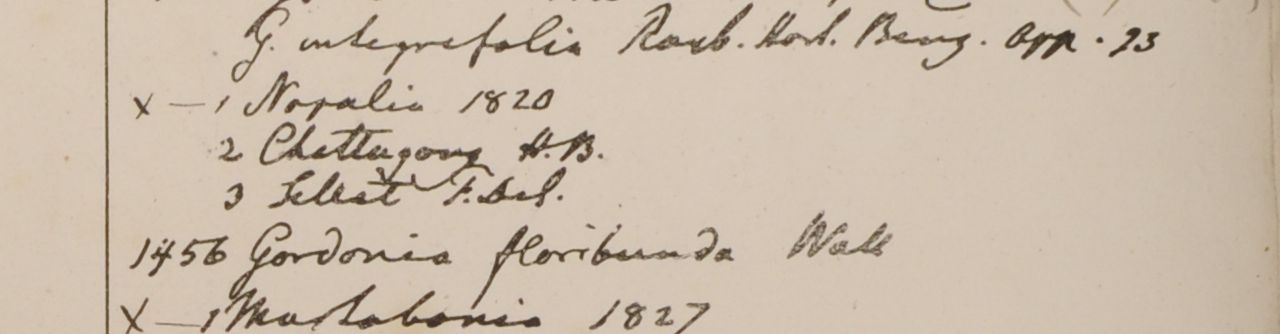 G. integrefolia Roxb. Hort. Beng. app. 93
x — 1 Napalia 1820
2 Chattagong H.B.
3 Sillet F. DeS.
1456 Gordonia floribunda Wall
X — 1 Martabania 1827